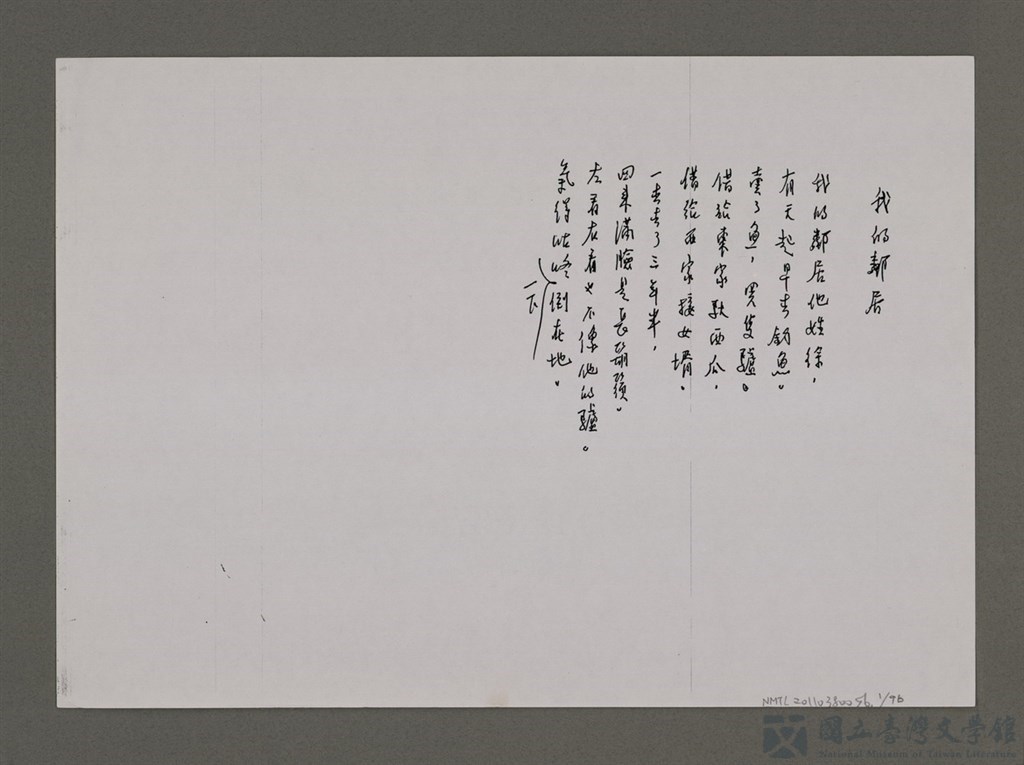 我的鄰居
我的鄰居他姓徐，
有天起早去釣魚。
賣了魚，買隻驢。
借給東家馱西瓜，
借給西家接女壻。
一去去了三年半，
回來滿臉是長鬍鬚。
左看右看也不像他的驢。
氣得咕咚倒在地。
一下
NMTL 20110380056 1/7B
國立臺灣文學館
National Museum of Taiwan Literature